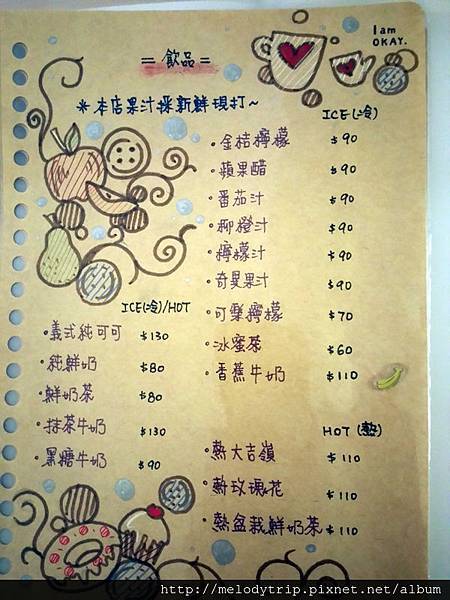 I am
OKAY.
= 飲品 =
※本店果汁採新鮮現打~
ICE(冷)
·金桔檸檬 $90
·蘋果醋 $90
·番茄汁 $90
·柳橙汁 $90
·檸檬汁 $90
·奇異果汁 $90
·可樂檸檬 $70
·冰蜜茶 $60
·香蕉牛奶 $110
ICE(冷)/HOT
·義式純可可 $130
·純鮮奶 $80
·鮮奶茶 $80
·抹茶牛奶 $130
·黑糖牛奶 $90
HOT (熱)
·熱大吉嶺 $110
·熱玫瑰花 $110
·熱盆栽鮮奶茶 $110
http://melodytrip.pixnet.net/album